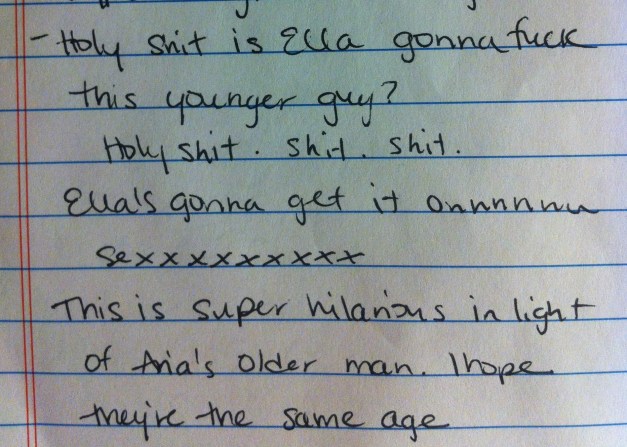 - Holy shit is Ella gonna fuck
this younger guy?
Holy shit. shit. shit.
Ella's gonna get it onnnnnn
sexxxxxxxxxx
This is super hilarious in light
of Aria's older man. I hope
they're the same age